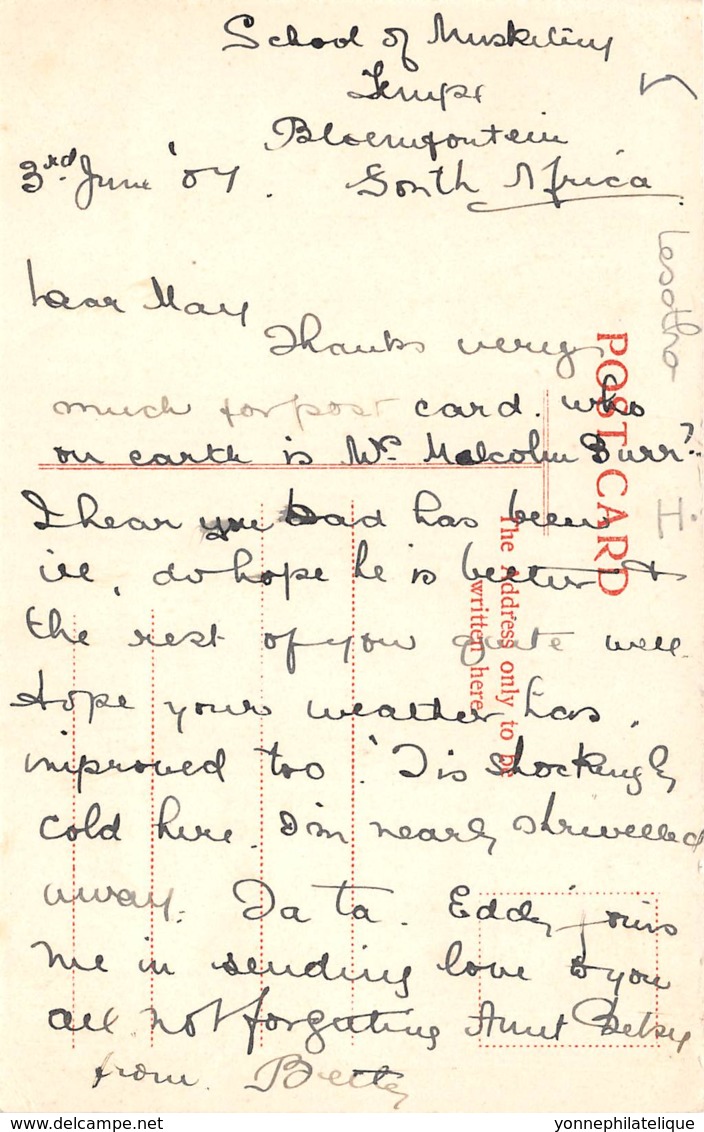 School of Musketry
Tempe
Bloemfontein
3rd June '07. South Africa.
Dear Mary
Thanks very
much for post card. who
on earth is Mr. Malcolm Burr?
I hear your Dad has been
ill, do hope he is better &
the rest of you quite well.
Hope your weather has
improved too. 'Tis shockingly
cold here. I'm nearly shrivelled
away. Ta ta. Eddy joins
me in sending love to you
all not forgetting Aunt Betsy
from. Betty
Lesotho
H.
POST CARD
The Address only to be
written here
yonnephilatelique